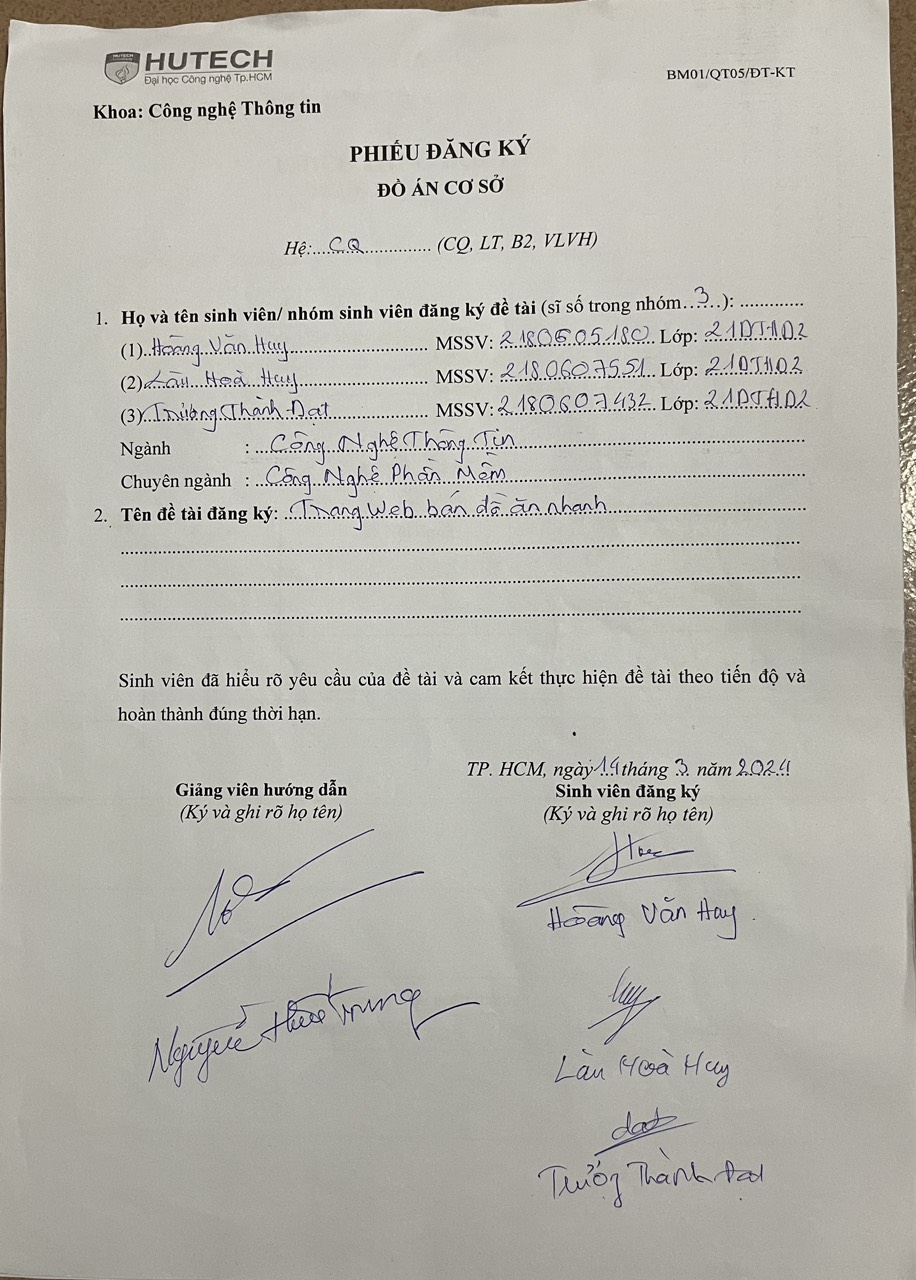 HUTECH
HUTECH
Đại học Công nghệ Tp.HCM
BM01/QT05/ĐT-KT
Khoa: Công nghệ Thông tin
PHIẾU ĐĂNG KÝ
ĐỒ ÁN CƠ SỞ
Hệ:....CQ.............. (CQ, LT, B2, VLVH)
1. Họ và tên sinh viên/ nhóm sinh viên đăng ký đề tài (sĩ số trong nhóm...3...): .............
(1)..Hoàng Văn Huy............................ MSSV: 2180605180.. Lớp: 21DTHD2
(2) Làu Hoà Huy............................ MSSV: 2180607551.. Lớp: 21DTHD2
(3) Trương Thành Đạt.................... MSSV: 2180607432. Lớp: 21DTHD2
Ngành : ...Công Nghệ Thông Tin..........................................................
Chuyên ngành : ..Công Nghệ Phần Mềm............................................................
2. Tên đề tài đăng ký: ..Trang Web bán đồ ăn nhanh........................................
Sinh viên đã hiểu rõ yêu cầu của đề tài và cam kết thực hiện đề tài theo tiến độ và
hoàn thành đúng thời hạn.
TP. HCM, ngày 14 tháng 3 năm 2024
Giảng viên hướng dẫn
(Ký và ghi rõ họ tên)
Sinh viên đăng ký
(Ký và ghi rõ họ tên)
Hoàng Văn Huy.
Nguyễn Hữu Trung
Huy
Làu Hoà Huy
dat
Trương Thành Đạt